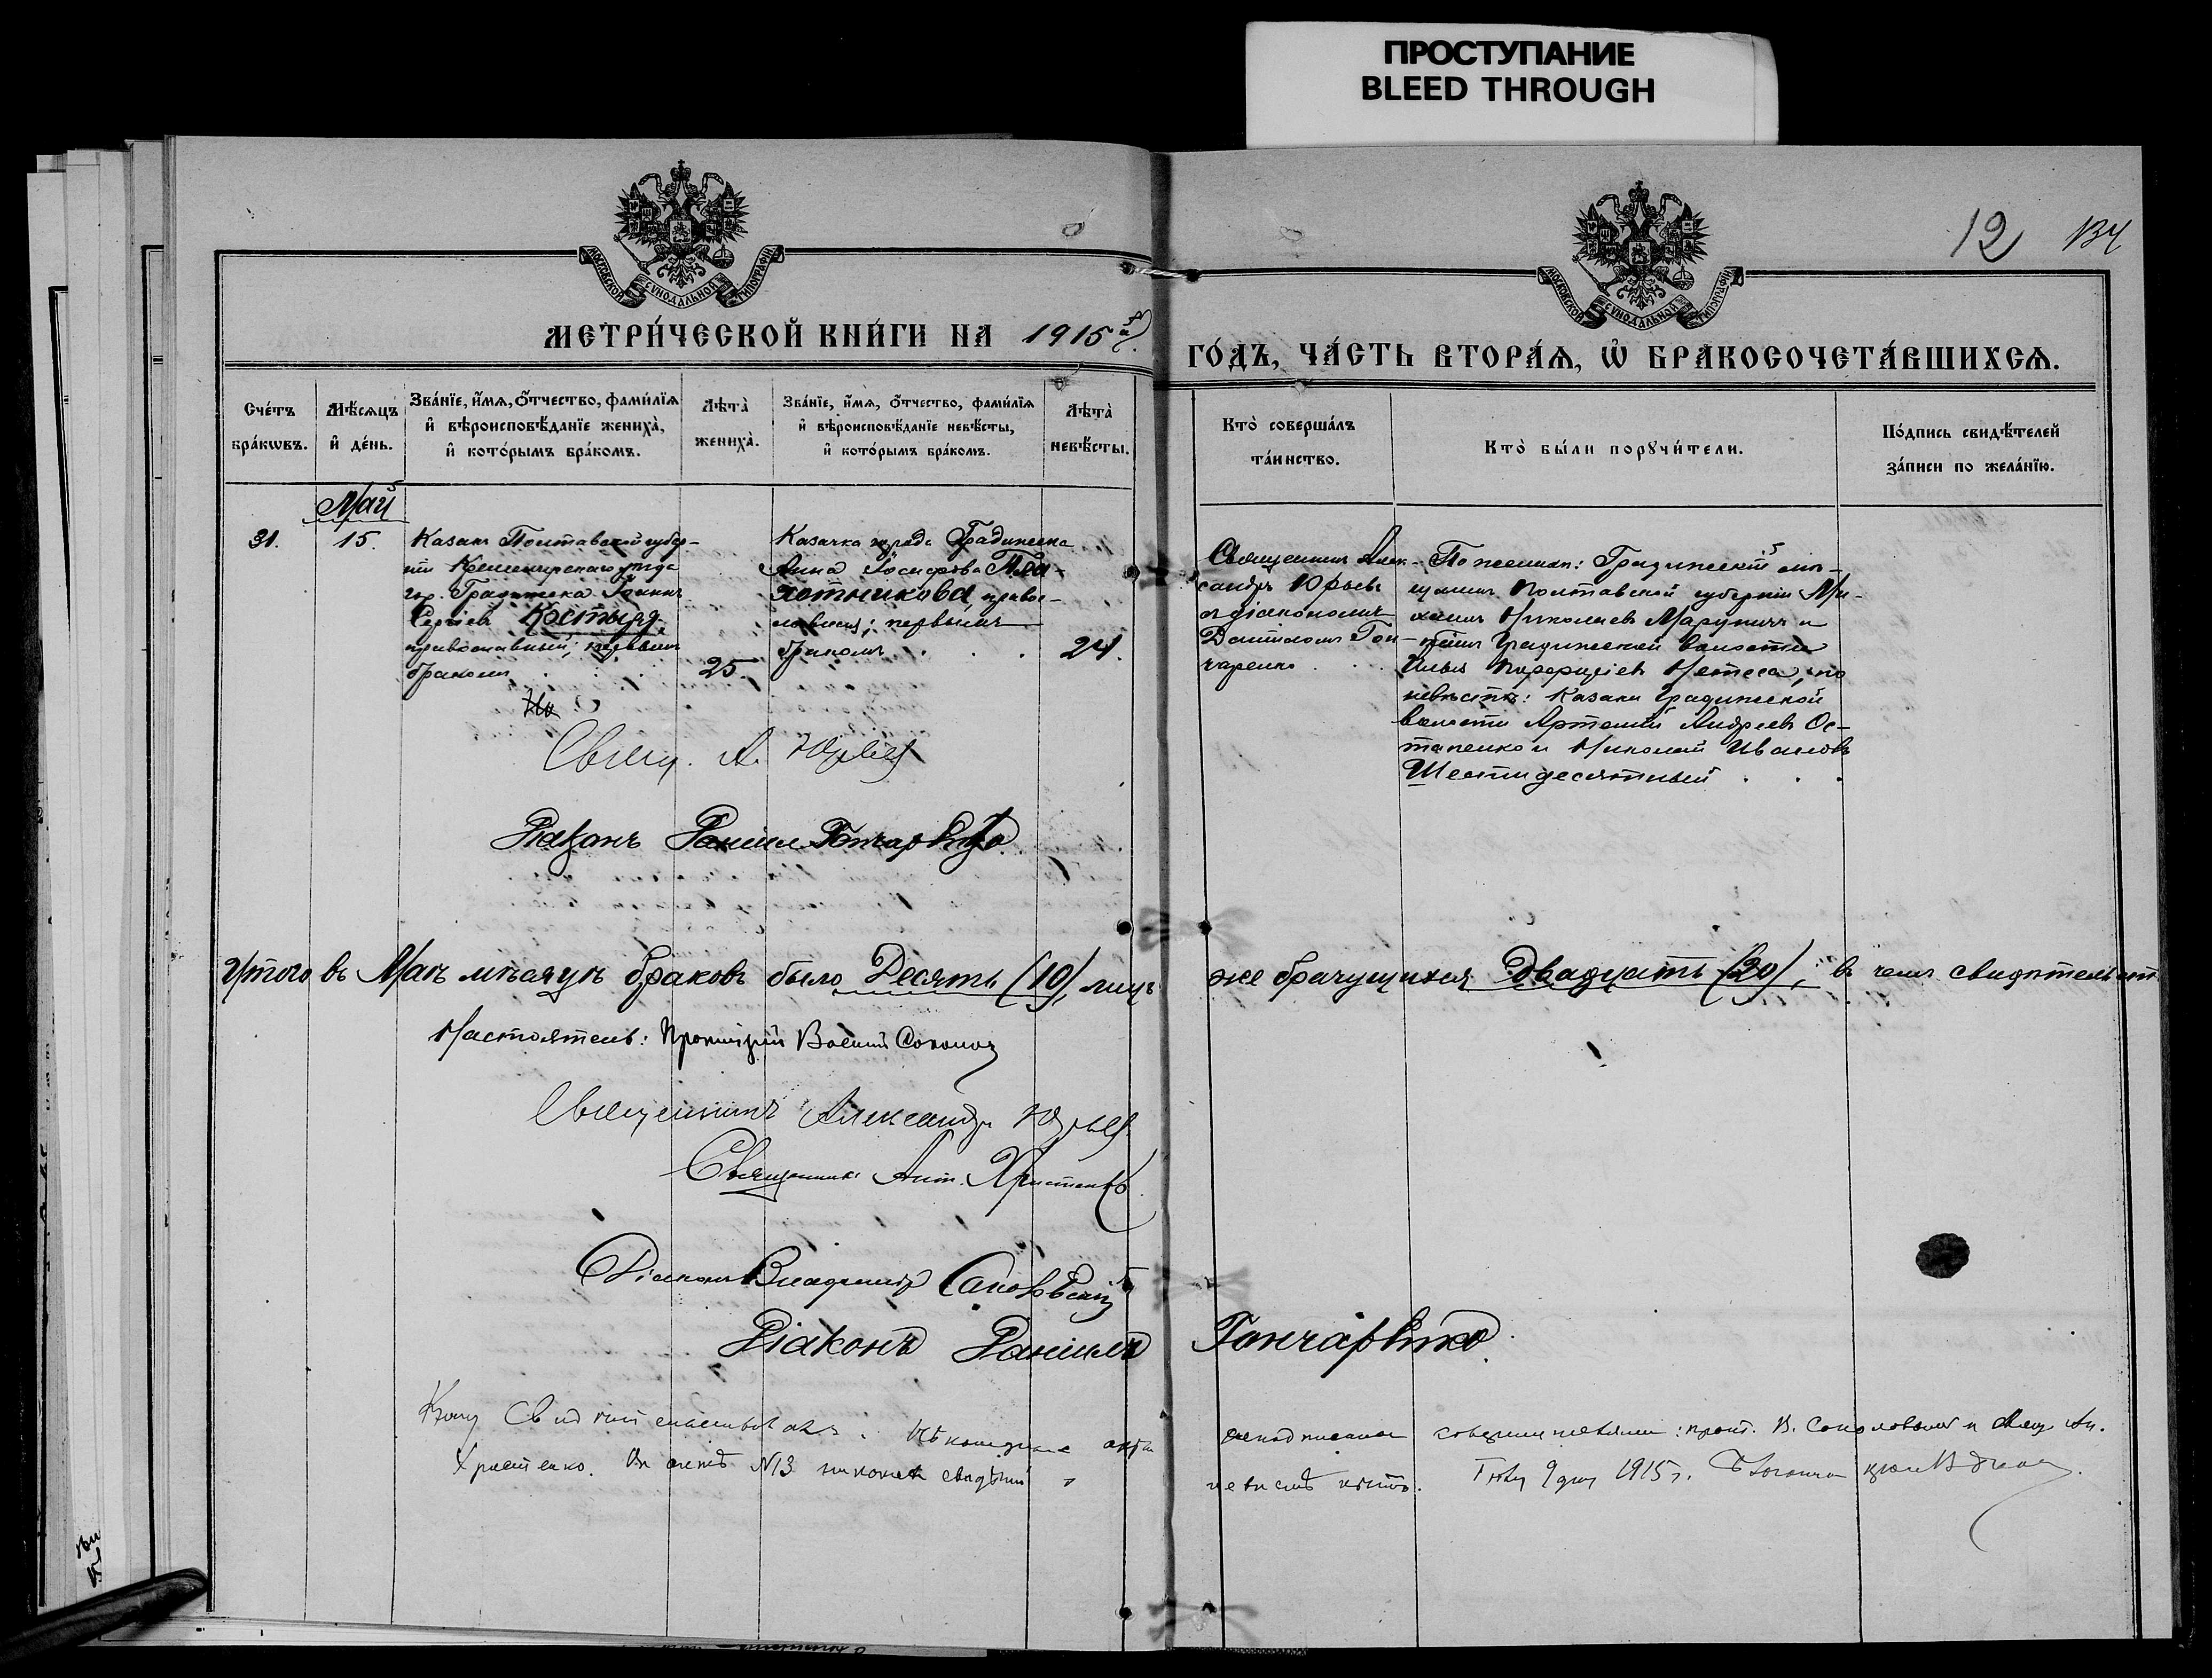 ПРОСТУПАНИЕ
BLEED THROUGH
МОСКОВСКОЙ СѴНОДАЛЬНОЙ ТИПОГРАФІИ
МОСКОВСКОЙ СѴНОДАЛЬНОЙ ТИПОГРАФІИ
12
МЕТРИ́ЧЕСКОЙ КНИ́ГИ НА 1915й
ГО́ДЪ, ЧА́СТЬ ВТОРА́Ѧ, Ѡ҆ БРАКОСОЧЕТА́ВШИХСѦ.
Сче́тъ
бра́кѡвъ.
Мѣ́сѧцъ
и҆ де́нь.
Зва́нїе, и҆́мѧ, ѻ҆́тчество, фами́лїѧ
и҆ вѣроисповѣ́данїе жениха̀,
и҆ кото́рымъ бра́комъ.
Лѣта̀
жениха̀.
Зва́нїе, и҆́мѧ, ѻ҆́тчество, фами́лїѧ
и҆ вѣроисповѣ́данїе невѣ́сты,
и҆ кото́рымъ бра́комъ.
Лѣта̀
невѣ́сты.
Кто̀ соверша́лъ
та́инство.
Кто̀ бы́ли порꙋчи́тели.
По́дпись свидѣ́телей
за́писи по жела́нїю.
Май
31.
15.
Казакъ Полтавской губер-
ніи Кременчугскаго уѣзда
гор. Градижска Іоаннъ
Сергіевъ Костыря,
православный, первымъ
бракомъ
25.
Казачка города Градижска
Анна Іосифова
православная; первымъ
бракомъ
24.
Священникъ Алек-
сандръ Юрьевъ
съ діакономъ
Даніиломъ Гон-
чаренко
По женихѣ: Градижскій мѣ-
щанинъ Полтавской губерніи Ми-
хаилъ Николаевъ Маруничъ и
Градижской волости
Илья Нетеса, по
невѣстѣ: казаки Градижской
волости Артемій Андреевъ Ос-
тапенко и Николай Ивановъ
Шестидесятный
Свящ. А. Юрьевъ
Діаконъ Даніилъ Гончаренко
Итого въ Маѣ мѣсяцѣ браковъ было Десять (10), лицъ же брачущихся Двадцать (20), въ чемъ свидѣтельств.
Настоятель: Протоіерей Василій Соколовъ
Священникъ Александръ Юрьевъ
Священникъ Ант. Христенко
Діаконъ Владиміръ
Діаконъ Даніилъ Гончаренко
прот. В. Соколовымъ и свящ. Ан.
Христенко. №13 1915 г.